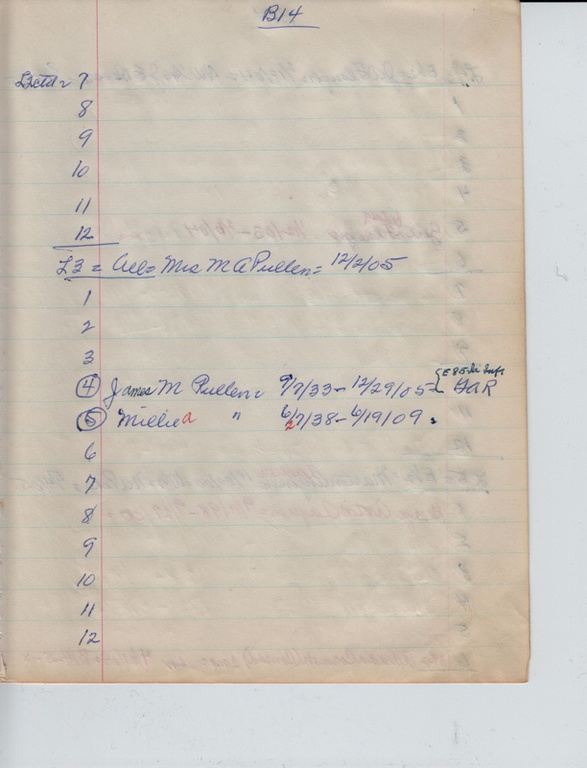 B14
7
8
9
10
11
12
L3 = All = Mrs M A Pullen = 12/2/05
1
2
3
4 James M Pullen = 9/7/33 - 12/29/05 = GAR
5 Millie a " 6/7/38 - 6/19/09
6
7
8
9
10
11
12